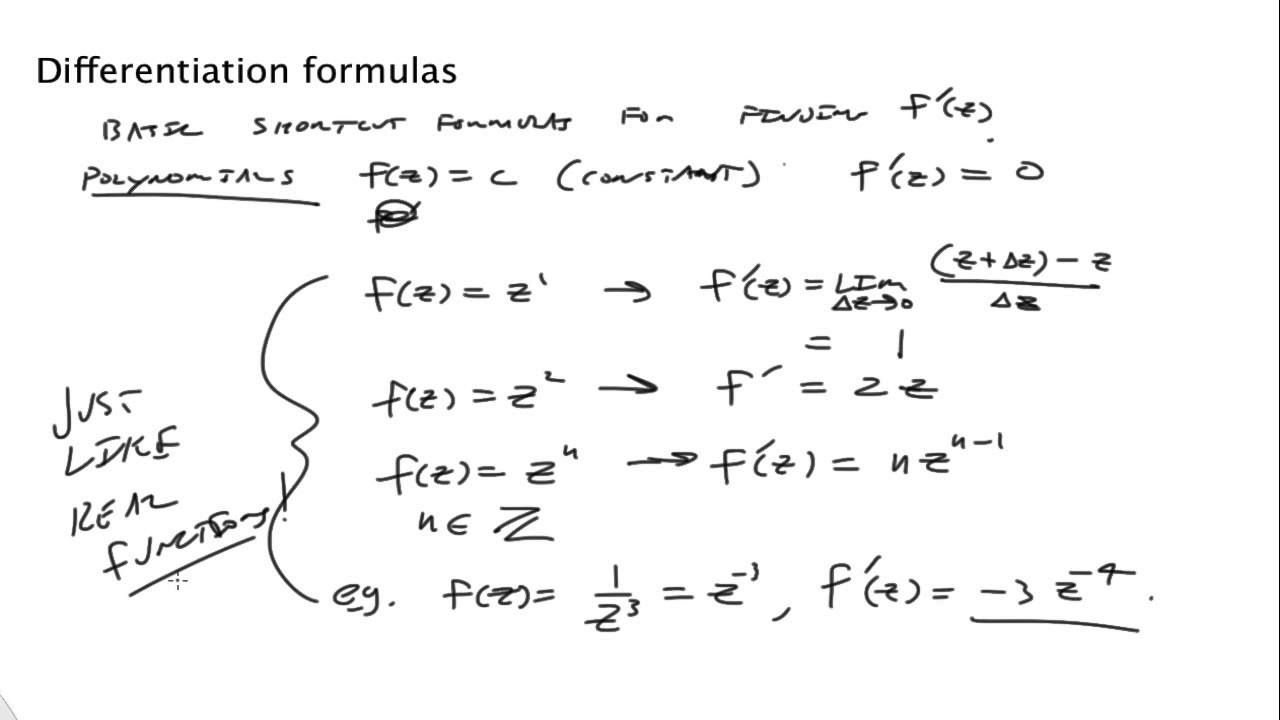 Differentiation formulas
BASIC SHORTCUT FORMULAS FOR FINDING f'(z).
POLYNOMIALS f(z) = c (CONSTANT) f'(z) = 0
f(z) = z¹ → f'(z) = LIM Δz→0 ((z+Δz) - z)/Δz
= 1
f(z) = z² → f' = 2z
f(z) = zⁿ → f'(z) = nzⁿ⁻¹
n ∈ ℤ
eg. f(z) = 1/z³ = z⁻³, f'(z) = -3 z⁻⁴.
JUST
LIKE
REAL
FUNCTIONS!